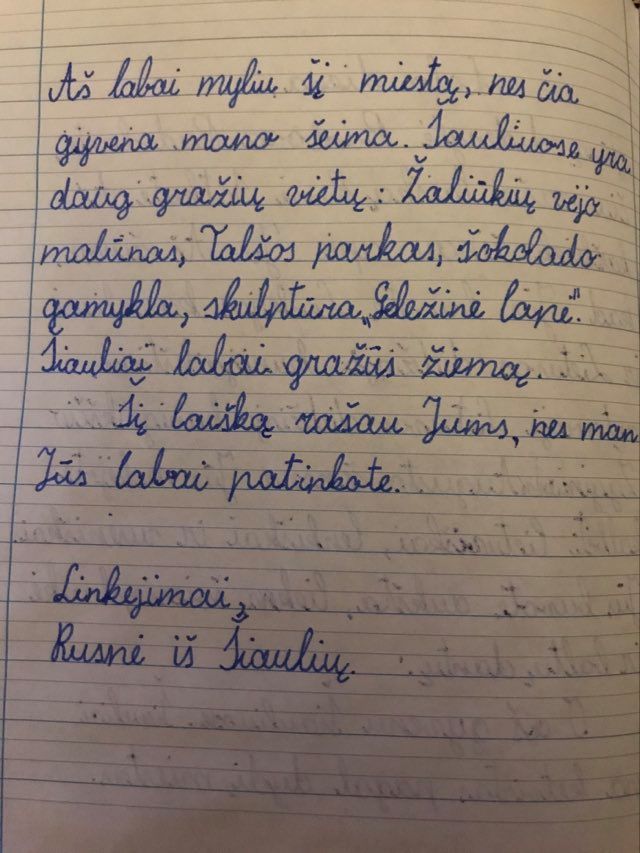 Aš labai myliu šį miestą, nes čia
gyvena mano šeima. Šauliuose yra
daug gražių vietų: Žaliūkių vėjo
malūnas, Talšos parkas, šokolado
gamykla, skulptūra „Geležinė lapė".
Šiauliai labai gražūs žiemą.
Šį laišką rašau Jums, nes man
Jūs labai patinkate.
Linkėjimai,
Rusnė iš Šiaulių.